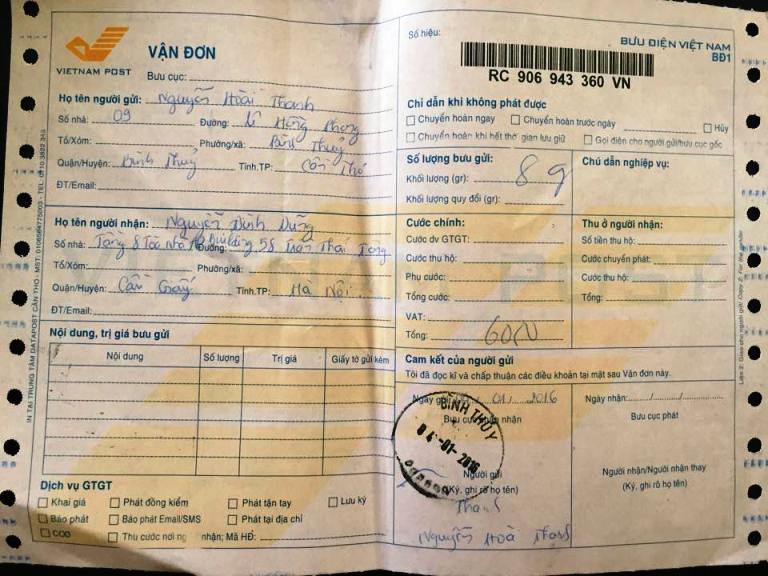 VIETNAM POST
VẬN ĐƠN
Bưu cục:
Họ tên người gửi: Nguyễn Hoài Thanh
Số nhà: 09 Đường: Lê Hồng Phong
Tổ/Xóm: Phường/xã: Bình Thuỷ
Quận/Huyện: Bình Thuỷ Tỉnh.TP: Cần Thơ
ĐT/Email:
Họ tên người nhận: Nguyễn Đình Dũng
Số nhà: Tầng 8 Toà Nhà Building, 58 Đường: Trần Thái Tông
Tổ/Xóm: Phường/xã:
Quận/Huyện: Cầu Giấy Tỉnh.TP: Hà Nội
ĐT/Email:
Nội dung, trị giá bưu gửi
Nội dung Số lượng Trị giá Giấy tờ gửi kèm
Dịch vụ GTGT
Khai giá Phát đồng kiểm Phát tận tay Lưu ký
Báo phát Báo phát Email/SMS Phát tại địa chỉ
COD Thu cước nơi người nhận; Mã HĐ:
Số hiệu:
BƯU ĐIỆN VIỆT NAM
BĐ1
RC 906 943 360 VN
Chỉ dẫn khi không phát được
Chuyển hoàn ngay Chuyển hoàn trước ngày Hủy
Chuyển hoàn khi hết thời gian lưu giữ Gọi điện cho người gửi/bưu cục gốc
Số lượng bưu gửi:
Khối lượng (gr): 8g
Khối lượng quy đổi (gr):
Chú dẫn nghiệp vụ:
Cước chính:
Cước dv GTGT:
Cước thu hộ:
Phụ cước:
Tổng cước:
VAT:
Tổng:
Thu ở người nhận:
Số tiền thu hộ:
Cước chuyển phát:
Cước thu hộ:
Tổng:
Cam kết của người gửi
Tôi đã đọc kĩ và chấp thuận các điều khoản tại mặt sau Vận đơn này.
Ngày gửi 01/2016
Bưu cục nhận
BÌNH THỦY
04-01-2016
Người gửi
(Ký, ghi rõ họ tên)
Thanh
Nguyễn Hoài Thanh
Ngày nhận:
Bưu cục phát
Người nhận/Người nhận thay
(Ký, ghi rõ họ tên)